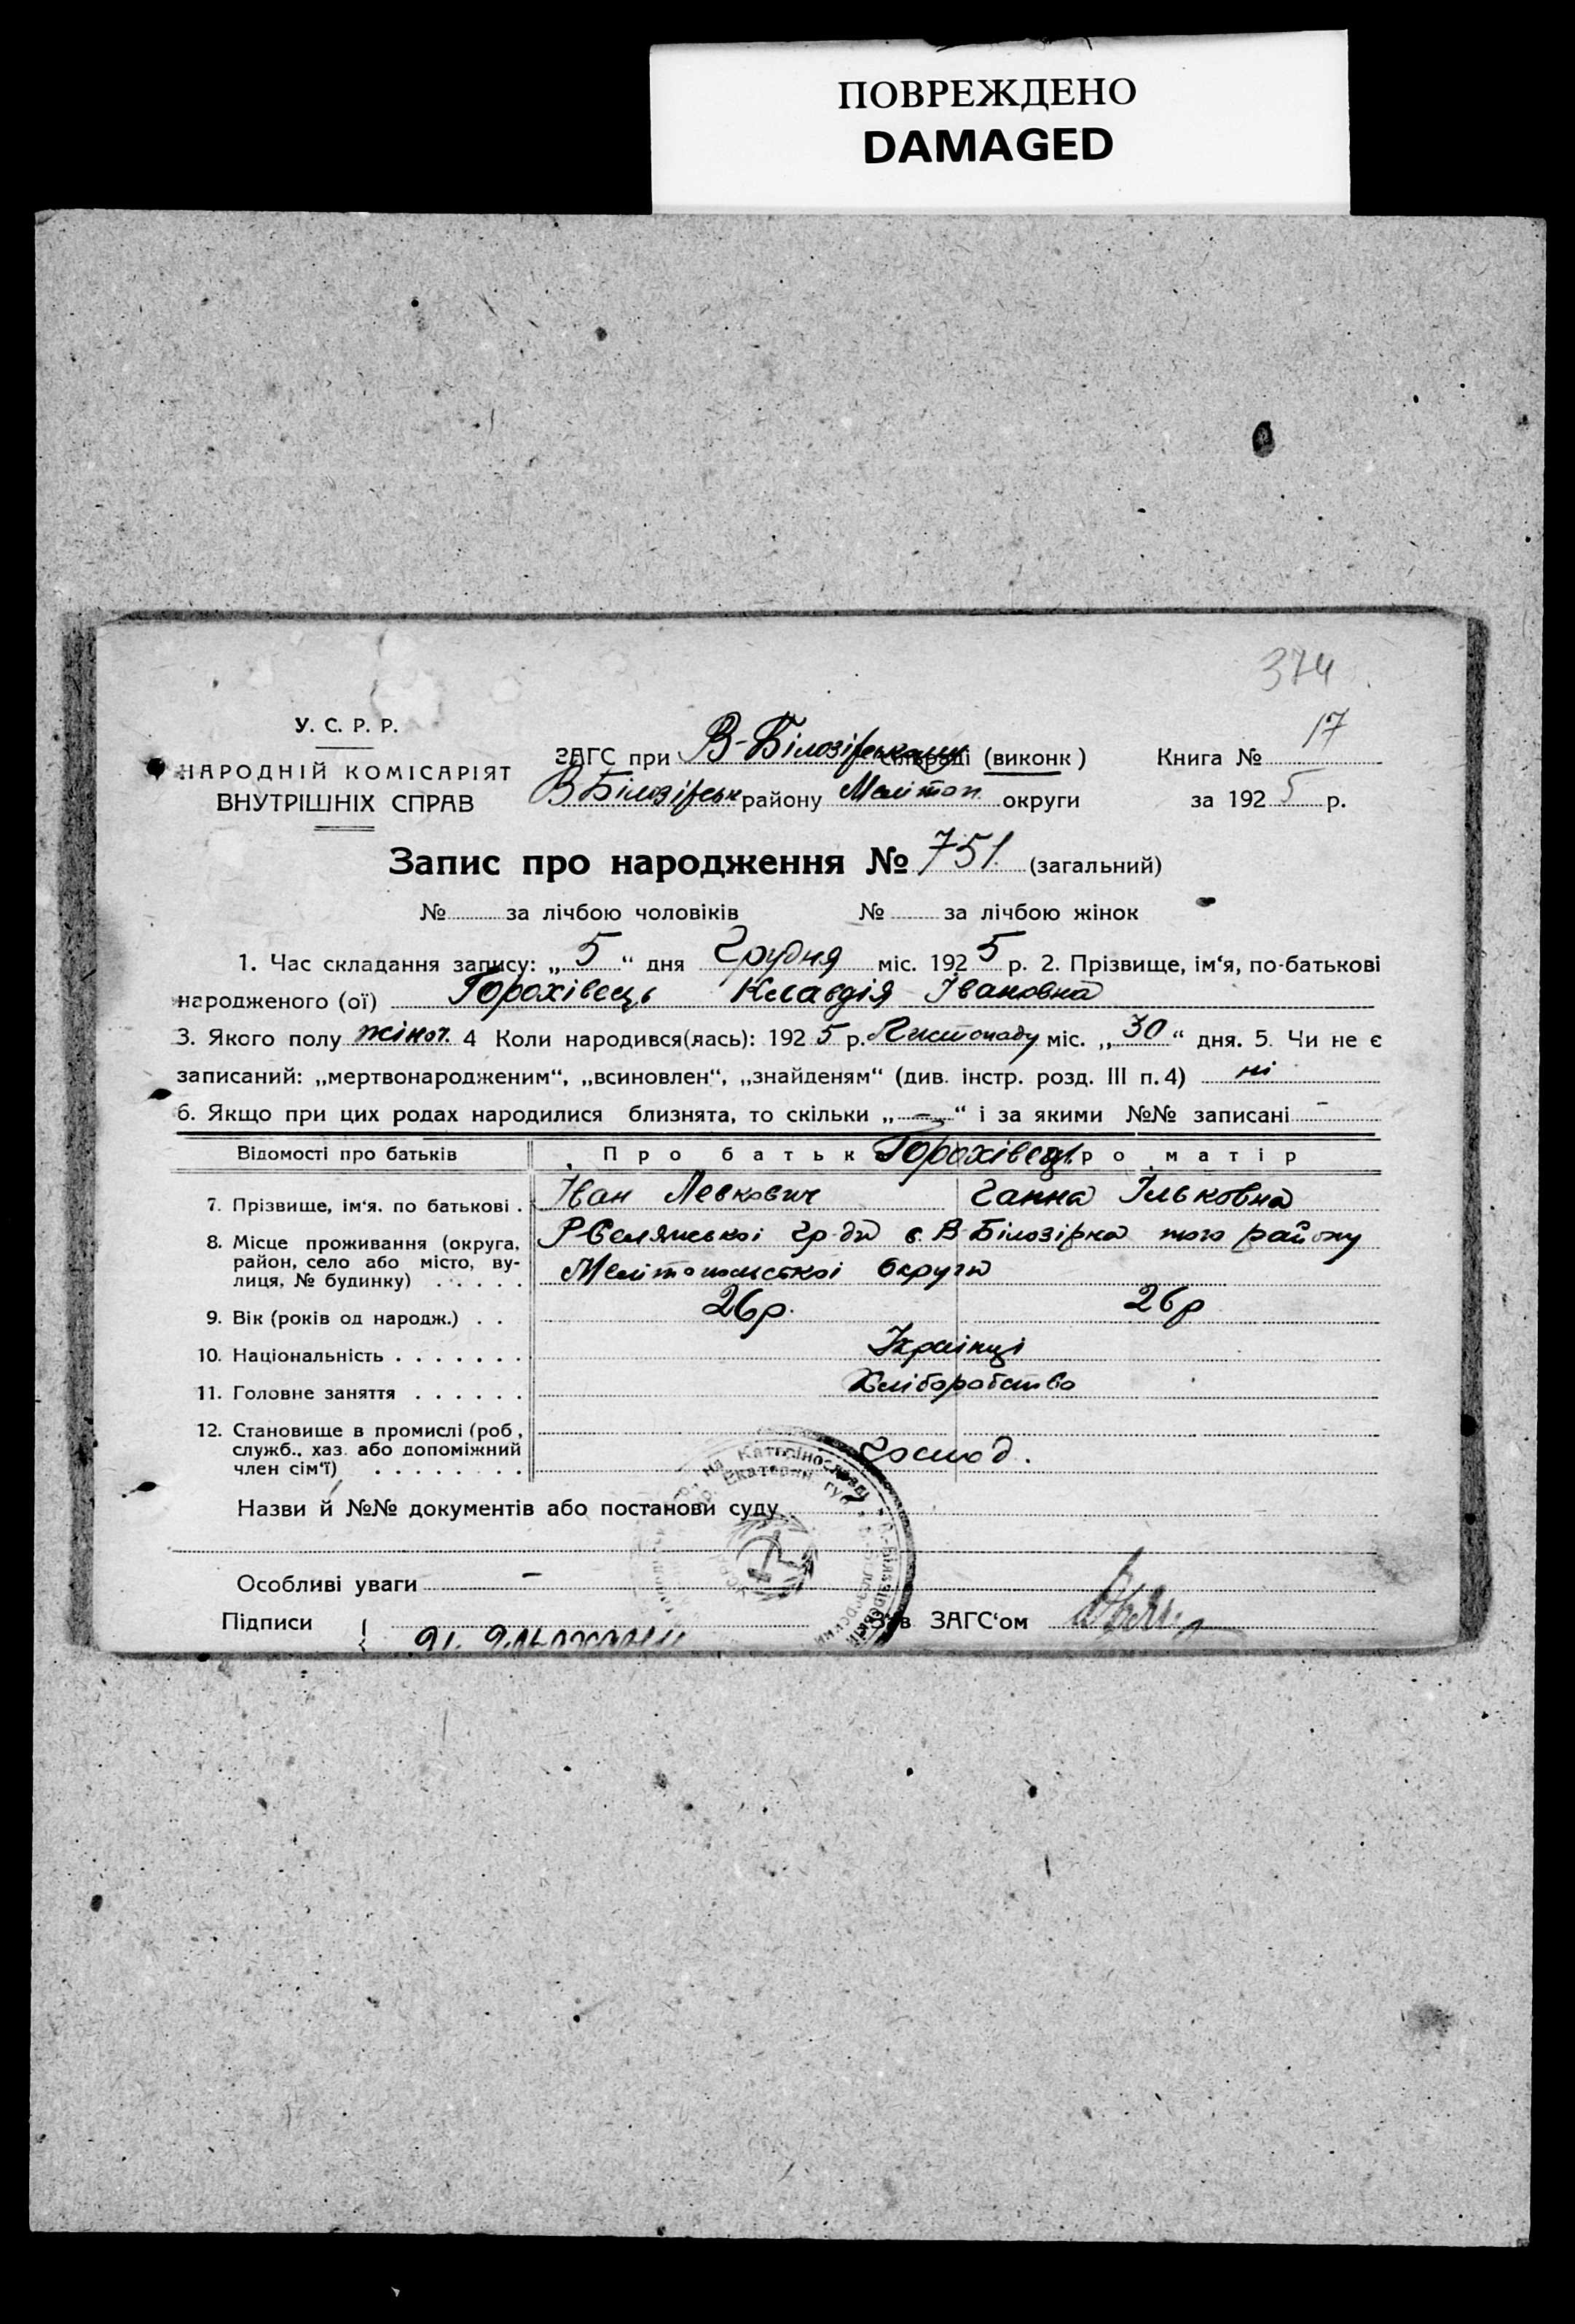 ПОВРЕЖДЕНО
DAMAGED
374
У. С. Р. Р.
НАРОДНІЙ КОМІСАРІЯТ
ВНУТРІШНІХ СПРАВ
ЗАГС при В-Білозірському сільраді (виконк)
В Білозірськ району Мелітоп. округи
Книга № 17
за 1925 р.
Запис про народження № 751. (загальний)
№ за лічбою чоловіків № за лічбою жінок
1. Час складання запису: „5“ дня Грудня міс. 1925 р. 2. Прізвище, ім'я, по-батькові
народженого (ої) Горохівець Клавдія Івановна
3. Якого полу жіноч. 4 Коли народився(лась): 1925 р. Листопаду міс. „30“ дня. 5. Чи не є
записаний: „мертвонародженим“, „всиновлен“, „знайденям“ (див. інстр. розд. III п. 4) ні
6. Якщо при цих родах народилися близнята, то скільки „–“ і за якими №№ записані –
Відомості про батьків Про батьк Горохівець ро матір
7. Прізвище, ім'я. по батькові . Іван Левкович Ганна Ільковна
8. Місце проживання (округа, район, село або місто, вулиця, № будинку) Р-Селянської гр-ди с. В-Білозірка того району
Мелітопольської Округи
9. Вік (років од народж.) . . 26р. 26р
10. Національність . . . . . . . Українці
11. Головне заняття . . . . . . Хліборобство
12. Становище в промислі (роб., служб., хаз. або допоміжний член сім'ї) . . . . . . . . Господ.
Назви й №№ документів або постанови суду
Особливі уваги –
Підписи
Зав ЗАГС'ом